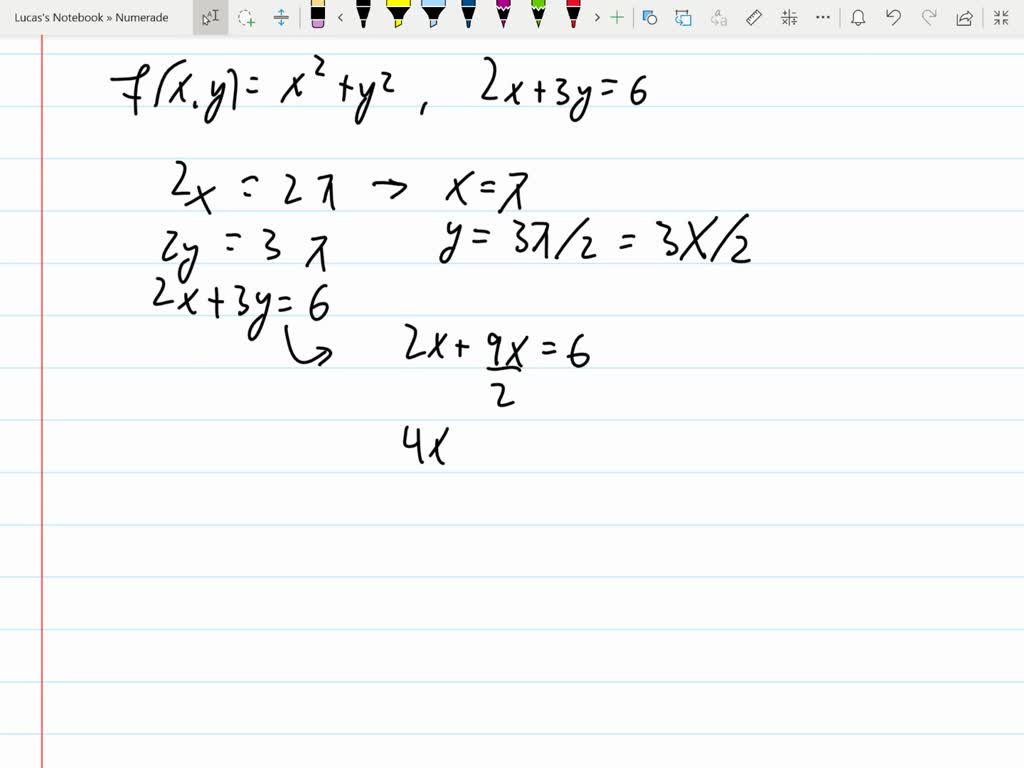 Lucas's Notebook » Numerade
f(x,y) = x² + y², 2x + 3y = 6
2x = 2λ → x = λ
2y = 3λ y = 3λ/2 = 3x/2
2x + 3y = 6
2x + 9x/2 = 6
4x